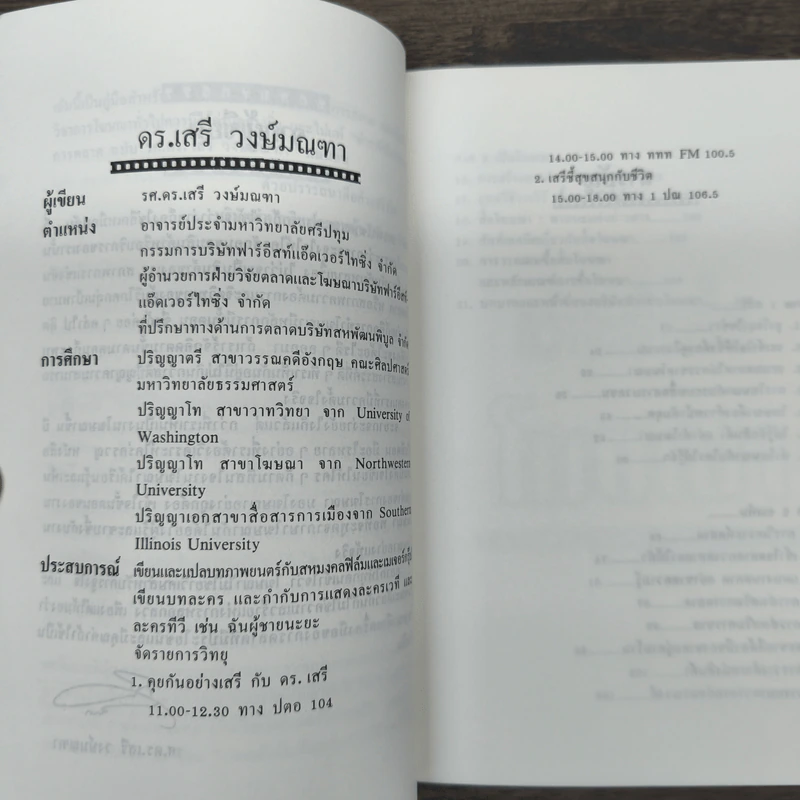 ดร.เสรี วงษ์มณฑา
ผู้เขียน รศ.ดร.เสรี วงษ์มณฑา
ตำแหน่ง อาจารย์ประจำมหาวิทยาลัยศรีปทุม
กรรมการบริษัทฟาร์อีสท์แอ๊ดเวอร์ไทซิ่ง จำกัด
ผู้อำนวยการฝ่ายวิจัยตลาดและโฆษณาบริษัทฟาร์อีสท์
แอ๊ดเวอร์ไทซิ่ง จำกัด
ที่ปรึกษาทางด้านการตลาดบริษัทสหพัฒนพิบูล จำกัด
การศึกษา ปริญญาตรี สาขาวรรณคดีอังกฤษ คณะศิลปศาสตร์
มหาวิทยาลัยธรรมศาสตร์
ปริญญาโท สาขาวาทวิทยา จาก University of
Washington
ปริญญาโท สาขาโฆษณา จาก Northwestern
University
ปริญญาเอกสาขาสื่อสารการเมืองจาก Southern
Illinois University
ประสบการณ์ เขียนและแปลบทภาพยนตร์กับสหมงคลฟิล์มและเมเจอร์กรุ๊ป
เขียนบทละคร และกำกับการแสดงละครเวที และ
ละครทีวี เช่น ฉันผู้ชายนะยะ
จัดรายการวิทยุ
1. คุยกันอย่างเสรี กับ ดร. เสรี
11.00-12.30 ทาง ปตอ 104
14.00-15.00 ทาง ททท FM 100.5
2. เสรีชี้สุขสนุกกับชีวิต
15.00-18.00 ทาง 1 ปณ 106.5